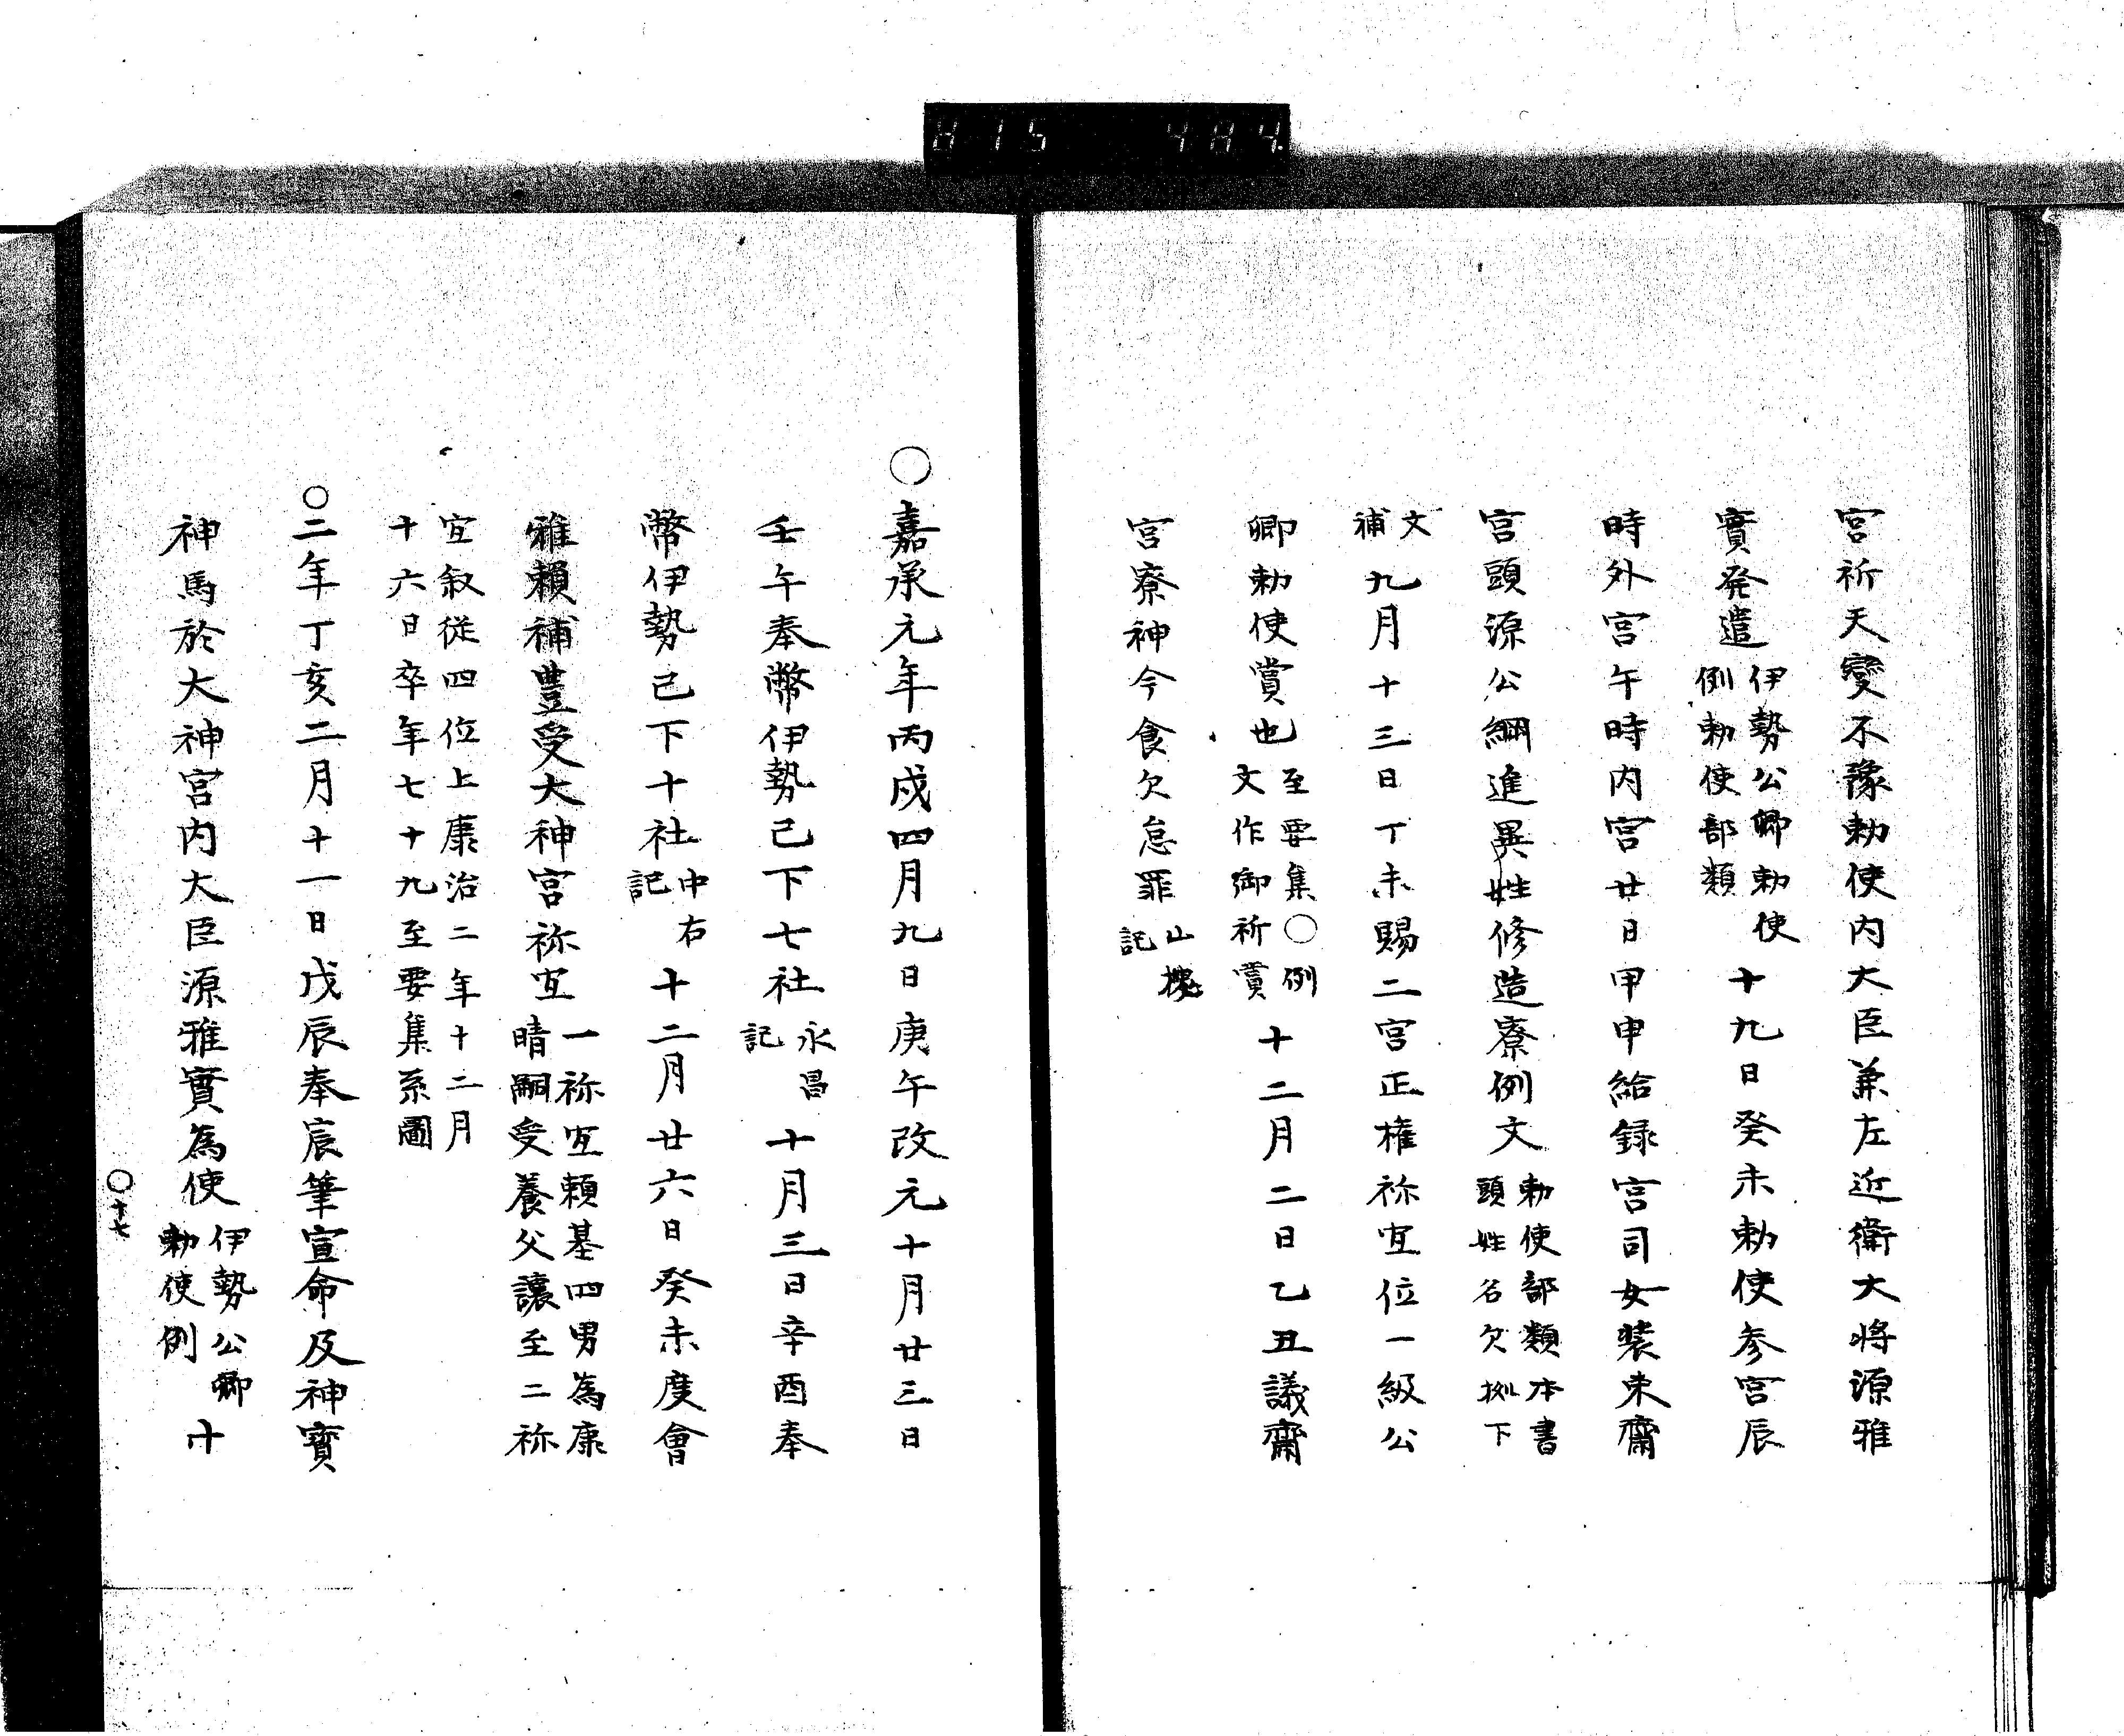 宮祈天變不豫勅使内大臣兼左近衛大将源雅
實発遣伊勢公卿勅使例勅使部類十九日癸未勅使参宮辰
時外宮午時内宮廿日甲申給録宮司女装束齋
宮頭源公綱進異姓修造寮例文勅使部類本書頭姓名欠拠下
文補九月十三日丁未賜二宮正権祢冝位一級公
卿勅使賞也至要集〇例文作御祈賞十二月二日乙丑議齋
宮寮神今食欠怠罪山槐記
〇嘉承元年丙戌四月九日庚午改元十月廿三日
壬午奉幣伊勢已下七社永昌記十月三日辛酉奉
幣伊勢已下十社中右記十二月廿六日癸未度會
雅頼補豊受大神宮祢冝一祢冝頼基四男為康晴嗣受養父譲至二祢
冝叙従四位上康治二年十二月十六日卒年七十九至要集系圖
〇二年丁亥二月十一日戊辰奉宸筆宣命及神寳
神馬於大神宮内大臣源雅實為使伊勢公卿勅使例十
〇十七
815 484